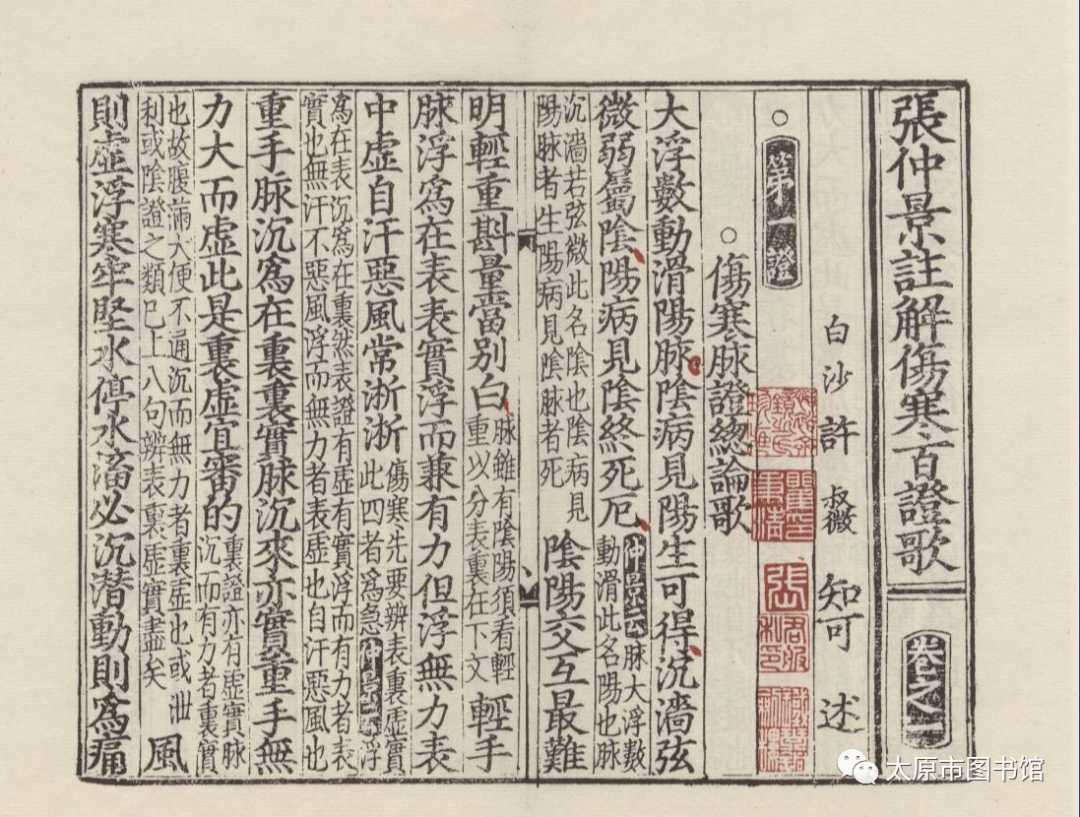 張仲景註解傷寒百證歌 卷之一
白沙 許 叔微 知可 述
第一證
傷寒脉證總論歌
大浮數動滑陽脉陰病見陽生可得沉濇弦
微弱屬陰陽病見陰終死厄 仲景云脉大浮數動滑此名陽也脉
沉濇若弦微此名陰也陰病見陽脉者生陽病見陰脉者死 陰陽交互最難
明輕重斟量當別白 脉雖有陰陽須看輕重以分表裏在下文 輕手
脉浮爲在表表實浮而兼有力但浮無力表
中虛自汗惡風常淅淅 傷寒先要辨表裏虛實此四者爲急仲景云浮
爲在表沉爲在裏然表證有虛有實浮而有力者表實也無汗不惡風浮而無力者表虛也自汗惡風也
重手脉沉爲在裏裏實脉沉來亦實重手無
力大而虛此是裏虛宜審的 裏證亦有虛實脉沉而有力者裏實
也故腹滿大便不通沉而無力者裏虛也或泄利或陰證之類已上八句辨表裏虛實盡矣 風
則虛浮寒牢堅水停水滀必沉潜動則爲痛
太原市图书馆